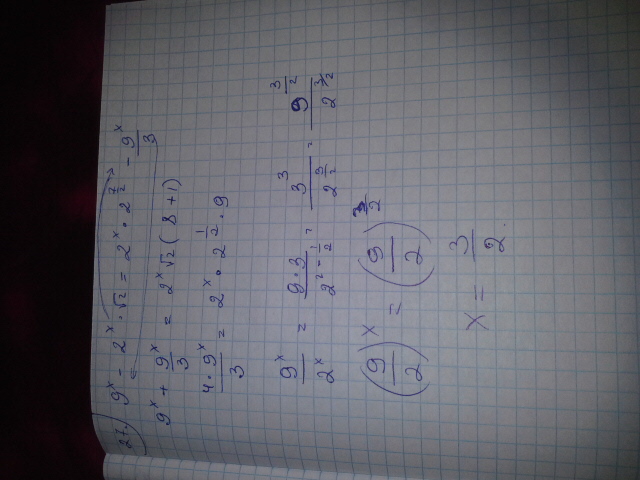 27) 9^x - 2^x · √2 = 2^x · 2^{7/2} - 9^x/3
9^x + 9^x/3 = 2^x √2 (8 + 1)
4 · 9^x / 3 = 2^x · 2^{1/2} · 9
9^x / 2^x = 9 · 3 / 2^{2 - 1/2} = 3^3 / 2^{3/2} = 9^{3/2} / 2^{3/2}
(9/2)^x = (9/2)^{3/2}
x = 3/2.